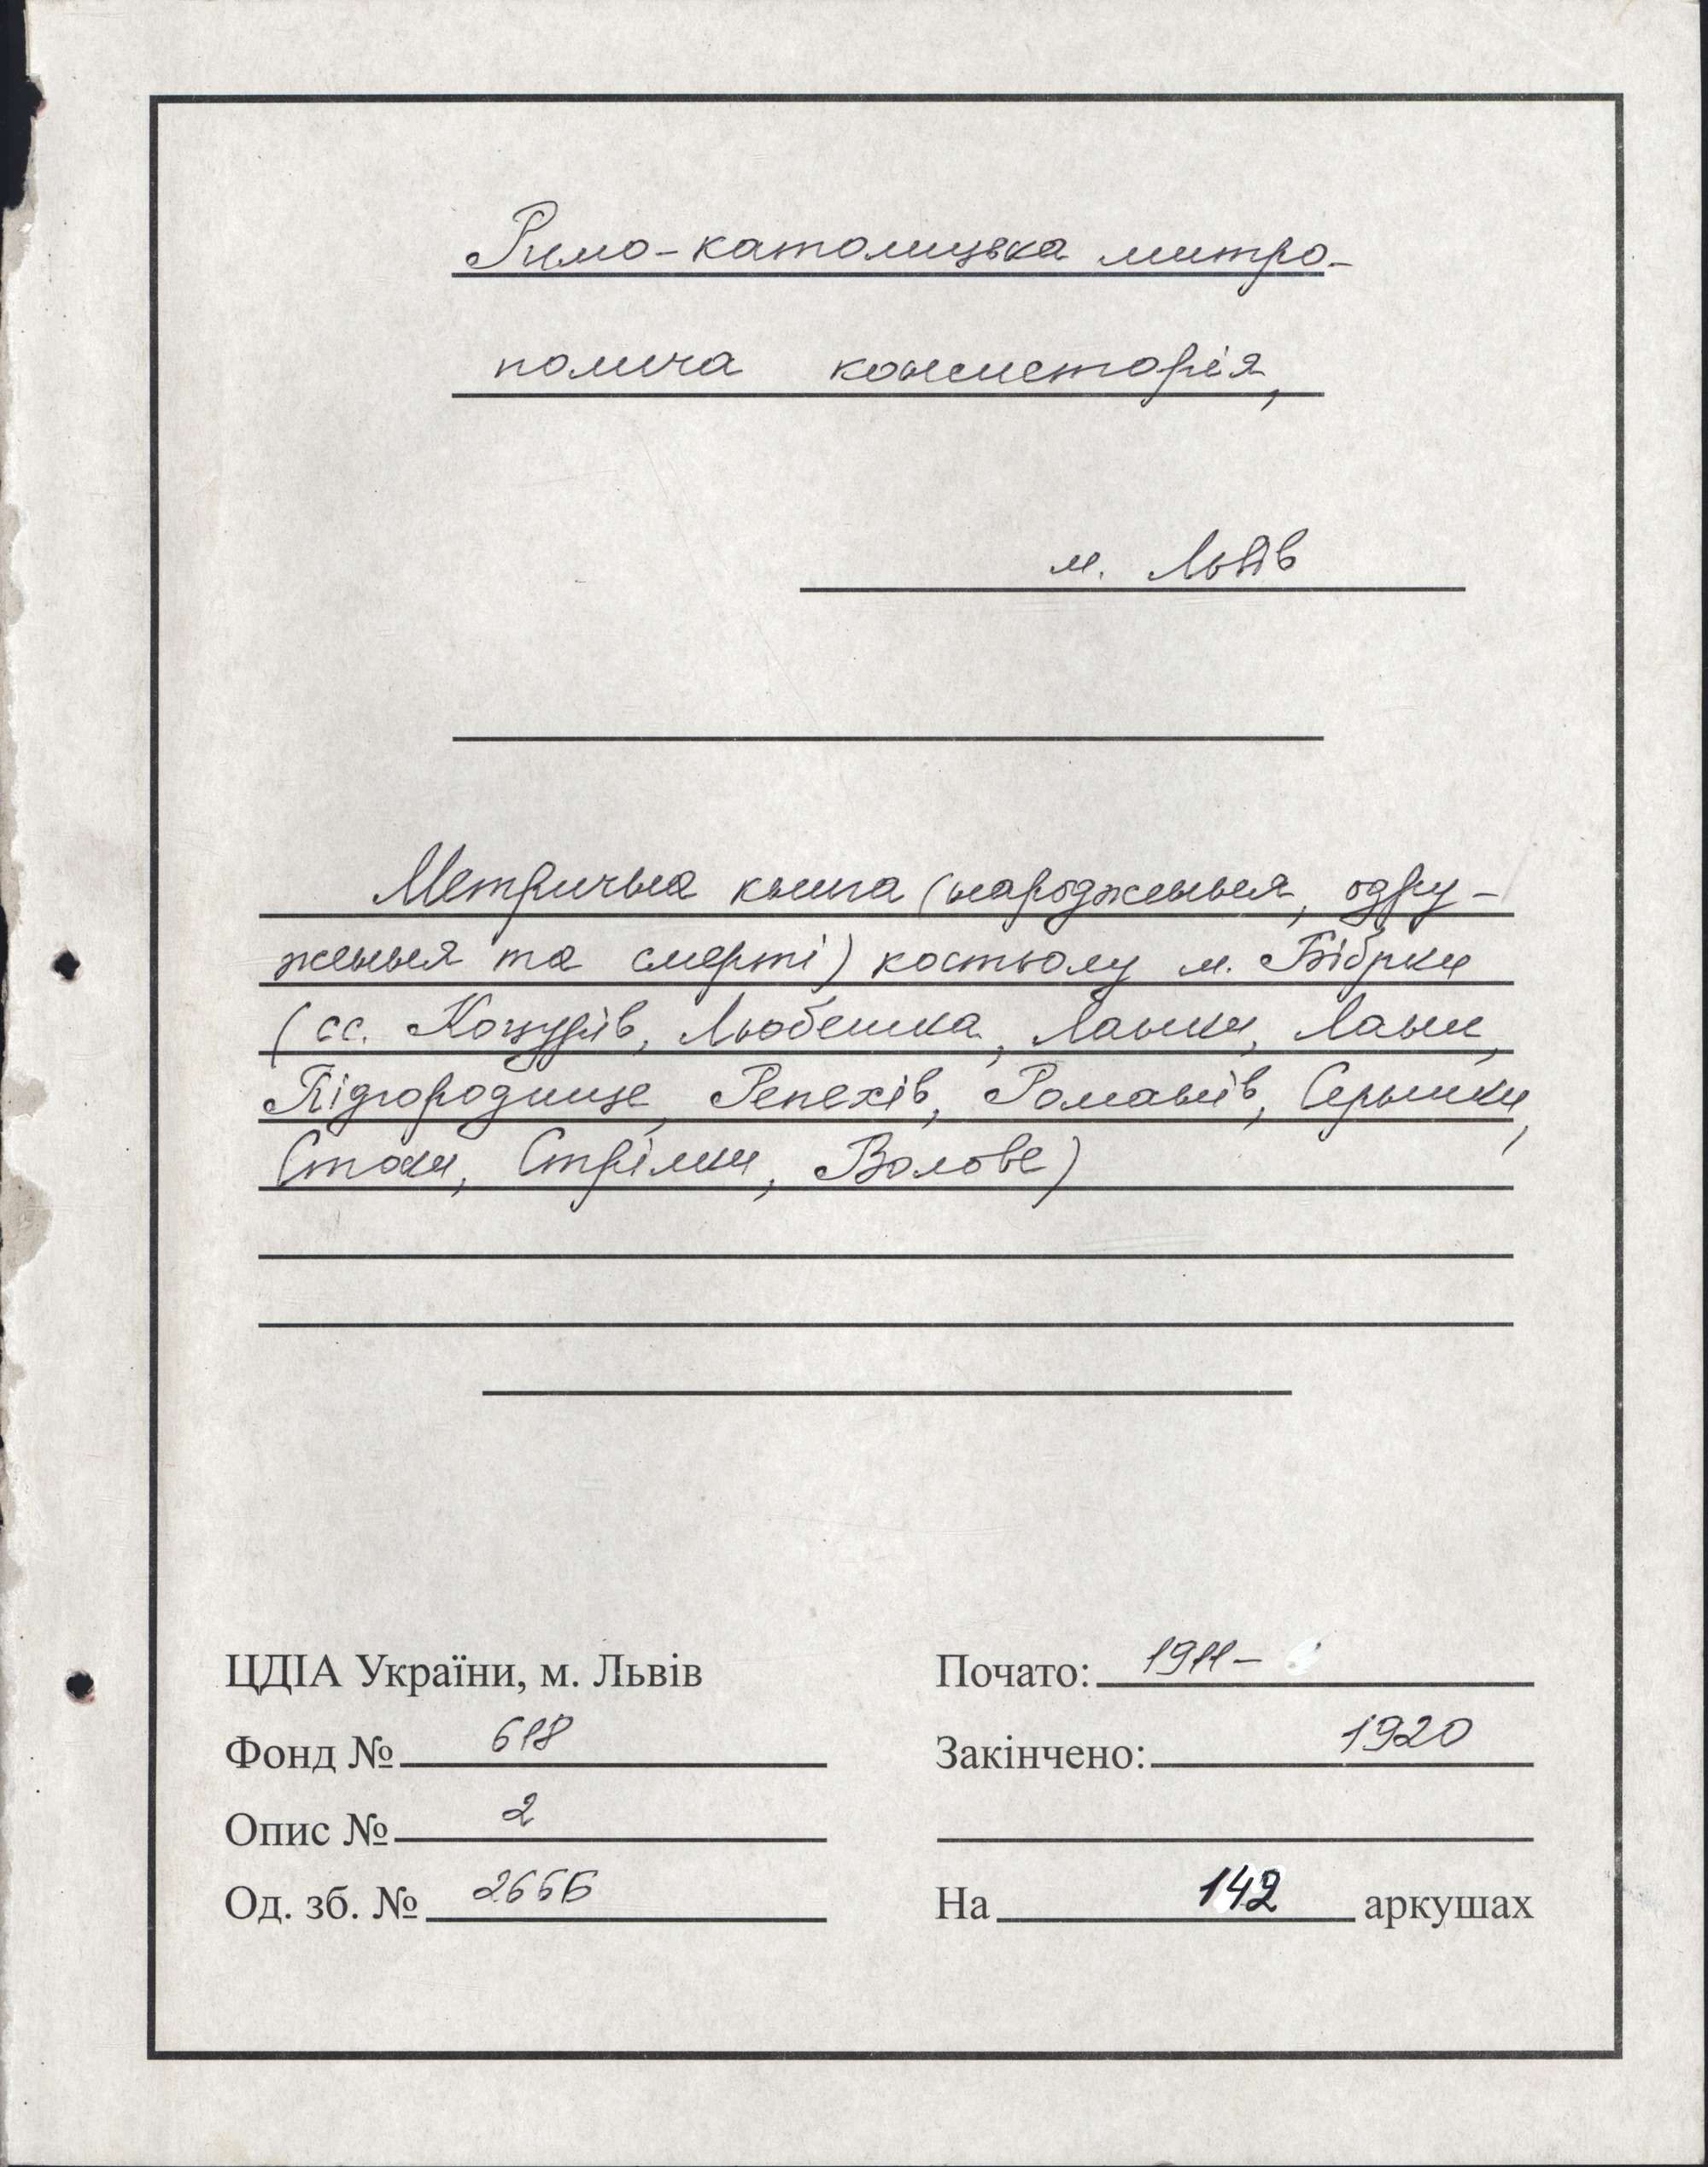 Римо-католицька митро-
полича консисторія,
м. Львів
Метрична книга (народження, одру-
ження та смерті) костьолу м. Бібрки
(сс. Коцурів, Любешка, Лашки, Лани,
Підгородище, Репехів, Романів, Серники,
Стоки, Стрілки, Волове)
ЦДІА України, м. Львів
Почато: 1911-
Фонд № 618
Закінчено: 1920
Опис № 2
Од. зб. №
На 142 аркушах